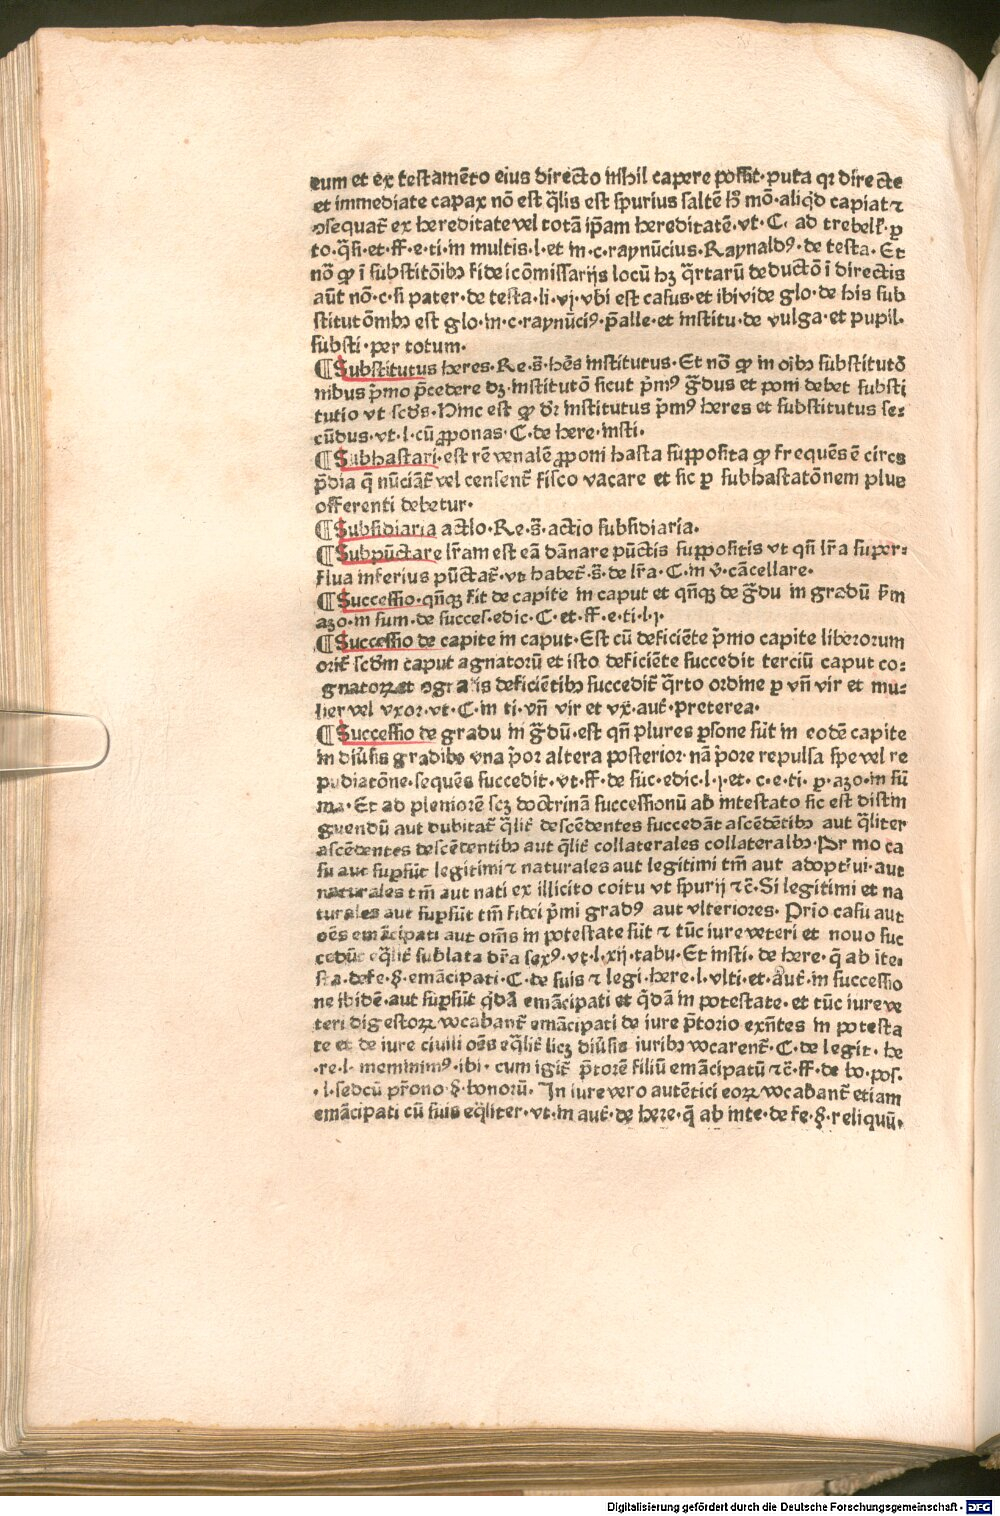 tum et ex testamēto eius directo nihil capere possit·puta qꝛ directe
et immediate capax nō est q̄lis est spurius saltē hͦ mō·aliq̇d capiat ⁊
ↄsequat᷑ ex hereditate vel totā ip̄am hereditatē·vt·C· ad trebell·ꝑ
to·q̄si·et·ff·e·ti·in multis·l·et in·c·raynūcius·Raynaldꝰ·de testa·Et
nō ꝙ ī substitōibꝫ fideicōmissarijs locū hꝫ q̄rtarū deductō ī directis
aūt nō·c·si pater·de testa·li·vj·vbi est casus·et ibi vide glo·de his sub
stitutōnibꝫ est glo·in·c·raynūciꝰ·p̄alle·et institu·de vulga·et pupil·
substi·per totum·
¶Substitutus heres·Re·s̄·hēs institutus·Et nō ꝙ in oībꝫ substitutō
nibus p̄mo p̄cedere dꝫ·institutō sicut p̄mꝰ g̃dus et poni debet substi
tutio vt scd̄s·Hinc est ꝙ dr̄ institutus p̄mꝰ heres et substitutus se-
cūdus·vt·l·cū ꝓponas·C·de here·insti·
¶Subhastari·est rē venalē ꝓponi hasta supposita ꝙ frequēs ē circa
p̄dia q̄ nūciāt᷑ vel censent᷑ fisco vacare et sic ꝑ subhastatōnem plus
offerenti debetur·
¶Subsidiaria actio·Re·s̄·actio subsidiaria·
¶Subpūctare lr̄am est eā dānare pūctis suppositis vt qn̄ lr̄a super-
flua inferius pūctat᷑·vt habet᷑·s̄·de lr̄a·C·in v̄·cācellare·
¶Successio·qn̄qꝫ fit de capite in caput et qn̄qꝫ de g̃du in gradū s̄m
azo·in sum·de succes·edic·C·et·ff·e·ti·l·j·
¶Successio de capite in caput·Est cū deficiēte p̄mo capite liberorum
orit᷑ scd̄m caput agnatorū et isto deficiēte succedit terciū caput co-
gnatoꝝ et ↄgnatis deficiētibꝫ succedit᷑ q̄rto ordine ꝑ vn̄ vir et mu-
lier vel vxor·vt·C·in ti·vn̄ vir et vx̄·aut᷑·preterea·
¶Successio de gradu in g̃dū·est qn̄ plures ꝑsone sūt in eodē capite
in diūsis gradibꝫ vna p̄or altera posterior·nā p̄ore repulsa spe vel re
pudiatōne·sequēs succedit·vt·ff·de suc·edic·l·j·et·c·e·ti·ꝑ·azo·in sū
ma·Et ad pleniorē scꝫ doctrinā successionū ab intestato sic est distin
guendū aut dubitat᷑ q̄lit᷑ descēdentes succedāt ascēdētibꝫ aut q̄liter
ascēdentes descēdentibꝫ aut q̄lit᷑ collaterales collateralbꝫ·Pr mo ca
su aut suꝑsūt legitimi ⁊ naturales aut legitimi tm̄ aut adoptiui·aut
naturales tm̄ aut nati ex illicito coitu vt spurij ⁊c̄·Si legitimi et na
turales aut suꝑsūt tm̄ fidei p̄mi gradꝰ aut vlteriores·Prio casu aut
oēs emācipati aut om̄s in potestate sūt ⁊ tūc iure veteri et nouo suc
cedūt eq̄lit᷑ sublata dr̄a sexꝰ·vt·l·xij·tabu·Et insti·de here·q̄ ab īte-
sta·defe·§·emācipati·C·de suis ⁊ legi·here·l·vlti·et·aut᷑·in successio
ne ibidē·aut suꝑsūt q̇dā emācipati et q̇dā in potestate·et tūc iure ve
teri digestoꝝ vocabant᷑ emācipati de iure p̄torio exn̄tes in potesta
te et de iure ciuili oēs eq̄lit᷑ licꝫ diūsis iuribꝫ vocarent᷑·C·de legit·he
·re·l·meminimꝰ·ibi·cum igit᷑ p̄torē filiū emācipatū ⁊c̄·ff·de bo·pos·
·l·sedcū pr̄ono·§·bonorū·In iure vero autētici eoꝝ vocabant᷑ etiam
emācipati cū suis eq̄liter·vt·in aut᷑·de here·q̄ ab inte·de fe·§·reliquū·
Digitalisierung gefördert durch die Deutsche Forschungsgemeinschaft - DFG